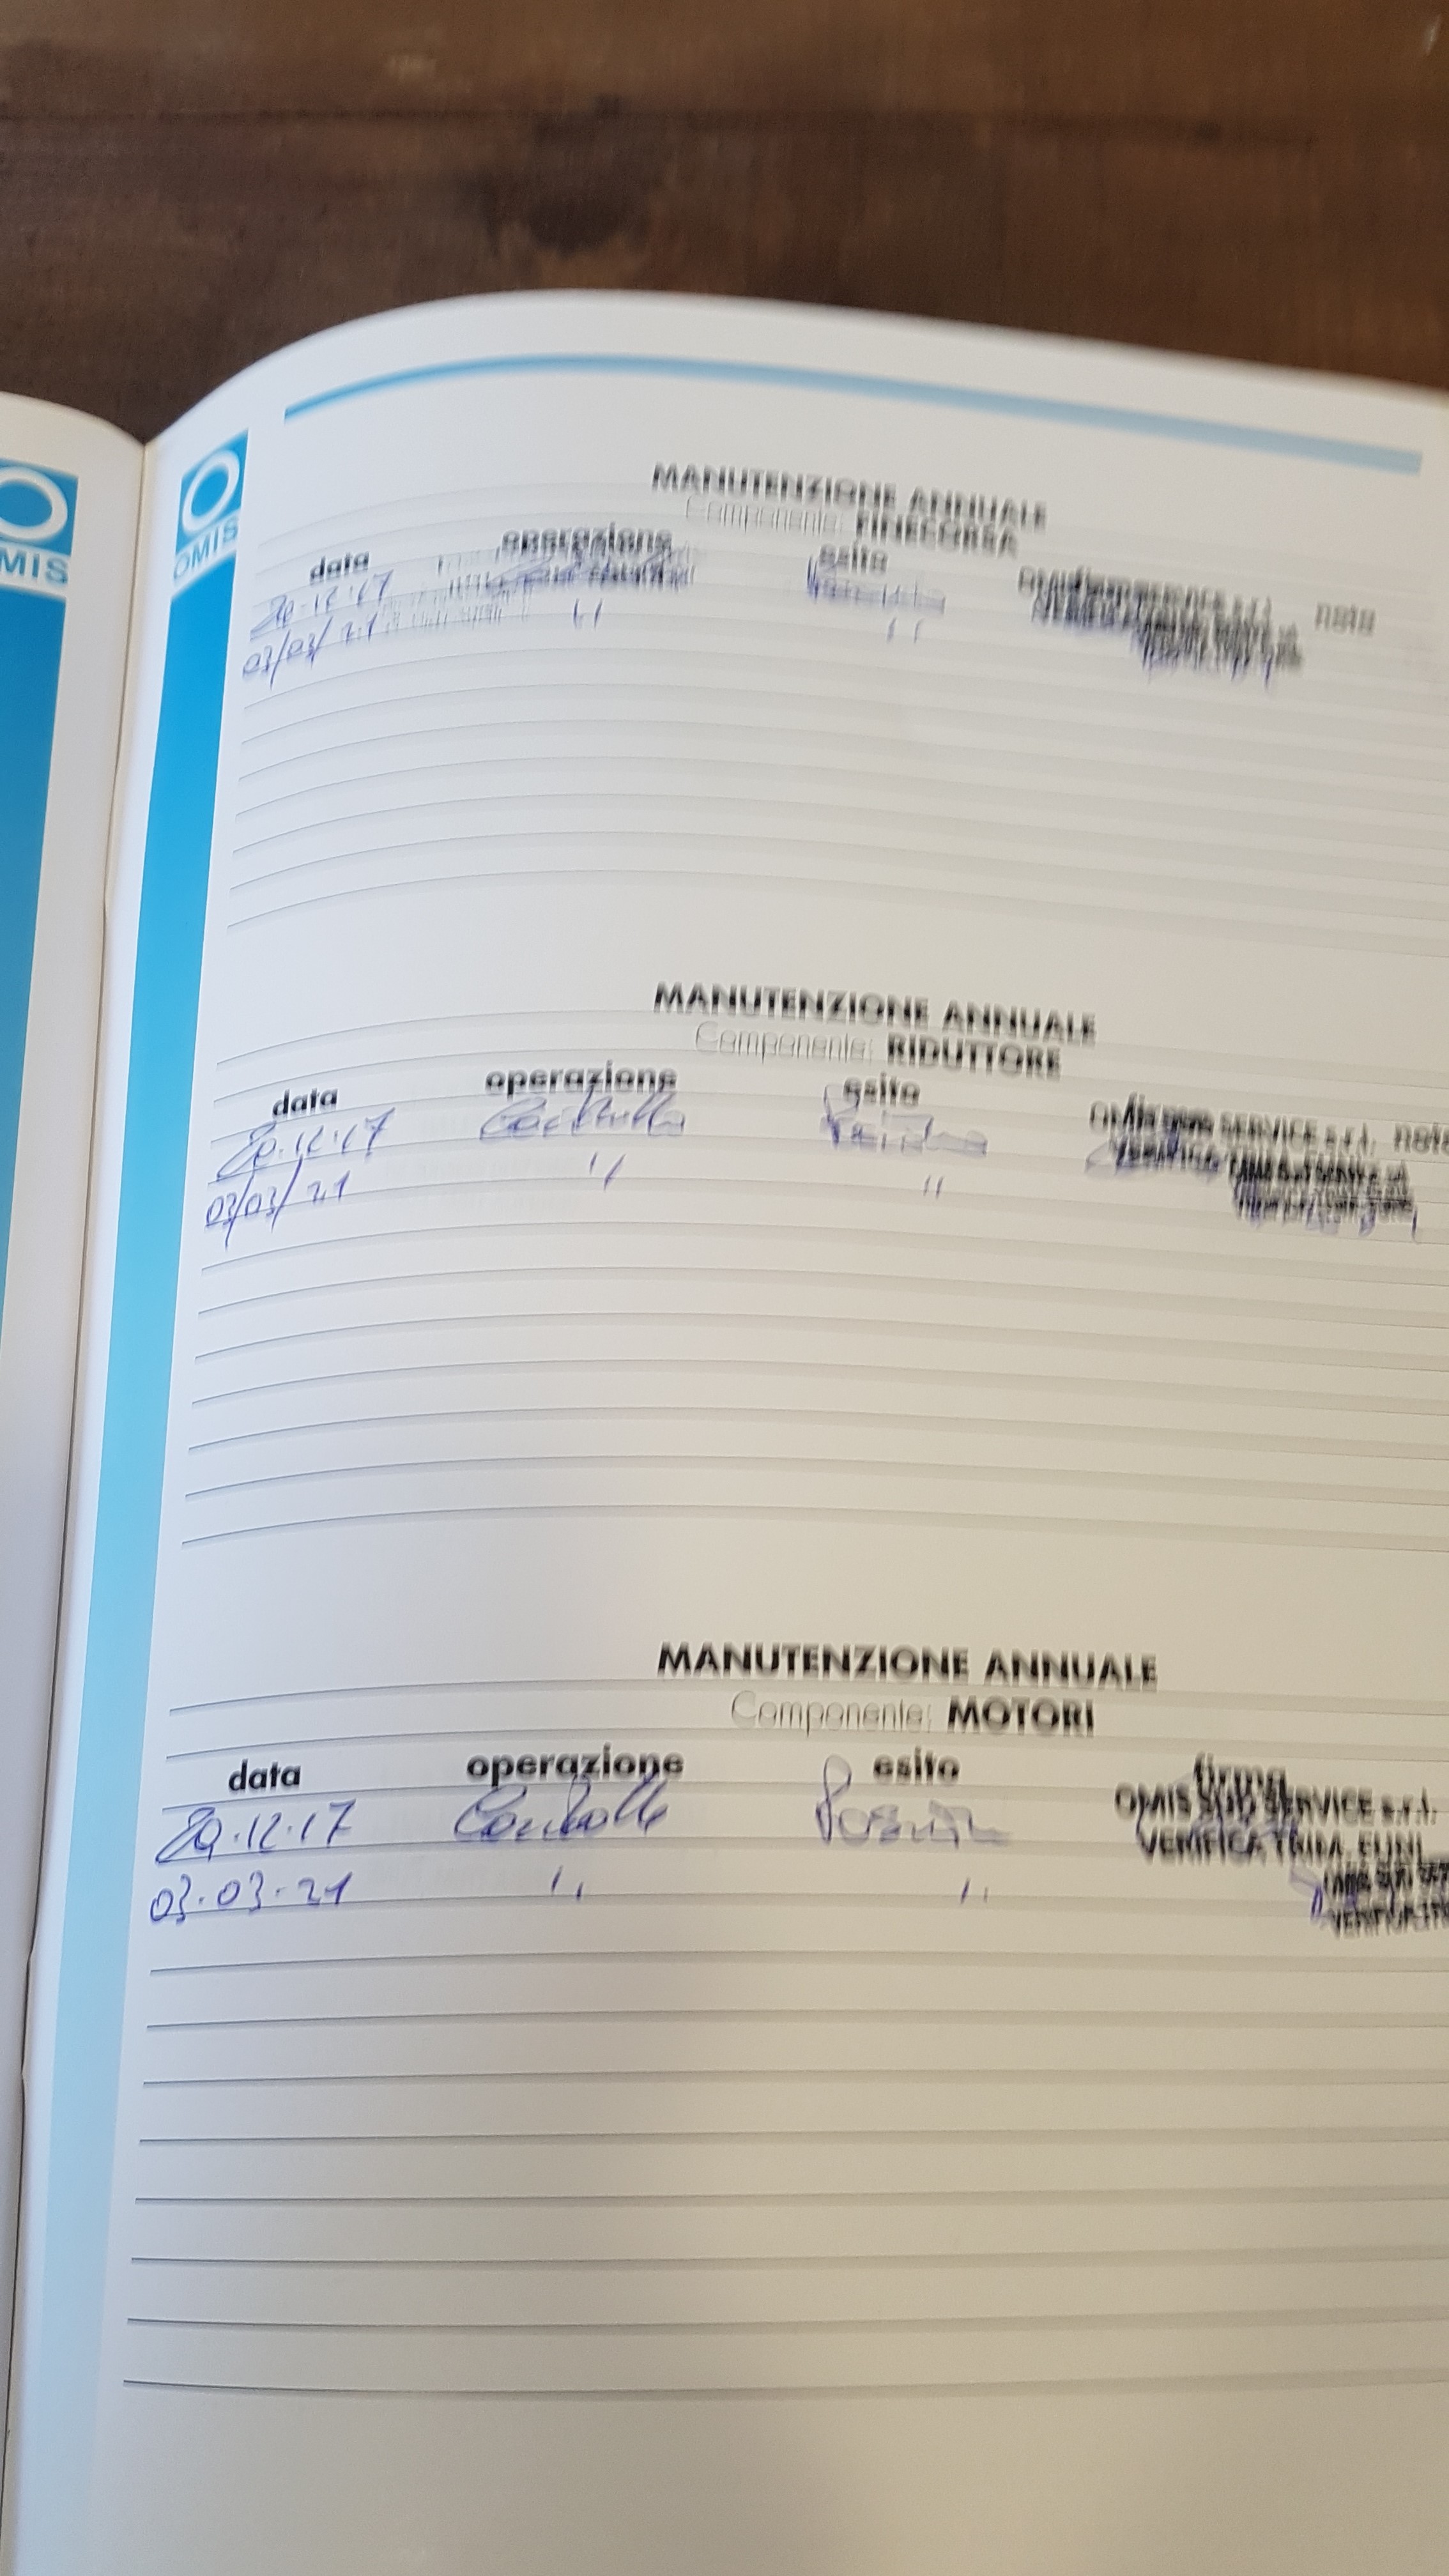 OMIS
MIS
MANUTENZIONE ANNUALE
Componente: FINECORSA
data operazione esito note
03/03/21 " "
MANUTENZIONE ANNUALE
Componente: RIDUTTORE
data operazione esito firma note
Controllo Positivo OMIS SUD SERVICE s.r.l.
03/03/21 " "
MANUTENZIONE ANNUALE
Componente: MOTORI
data operazione esito firma
29.12.17 Controllo Positivo OMIS SUD SERVICE s.r.l.
VERIFICA TRIM. FUNI
03.03.21 " "